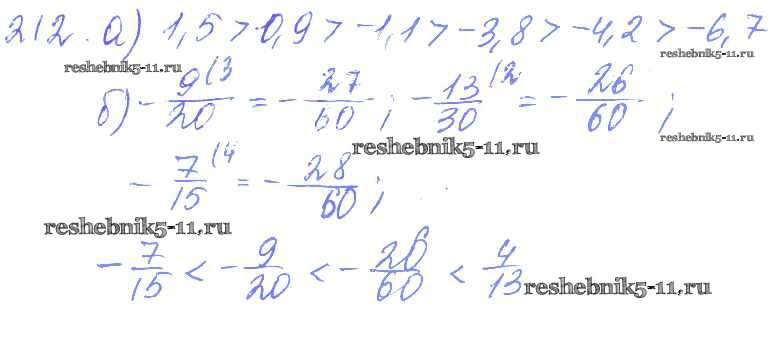 212. а) 1,5 > 0,9 > -1,1 > -3,8 > -4,2 > -6,7
reshebnik5-11.ru
reshebnik5-11.ru
б) - 9/20 (3 = - 27/60 ; - 13/30 (2 = - 26/60 ;
reshebnik5-11.ru
reshebnik5-11.ru
- 7/15 (4 = - 28/60 ;
reshebnik5-11.ru
- 7/15 < - 9/20 < - 26/60 < 4/13
reshebnik5-11.ru